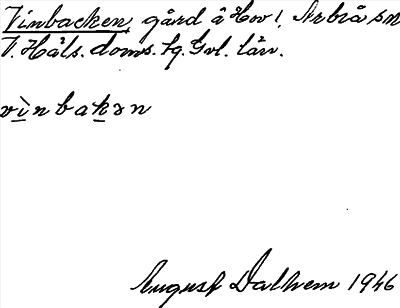 Vinbacken, gård å Hov, Arbrå sn
V. Häls. doms. fg. Gvl. län.
vìnbakən
August Dalhem 1946